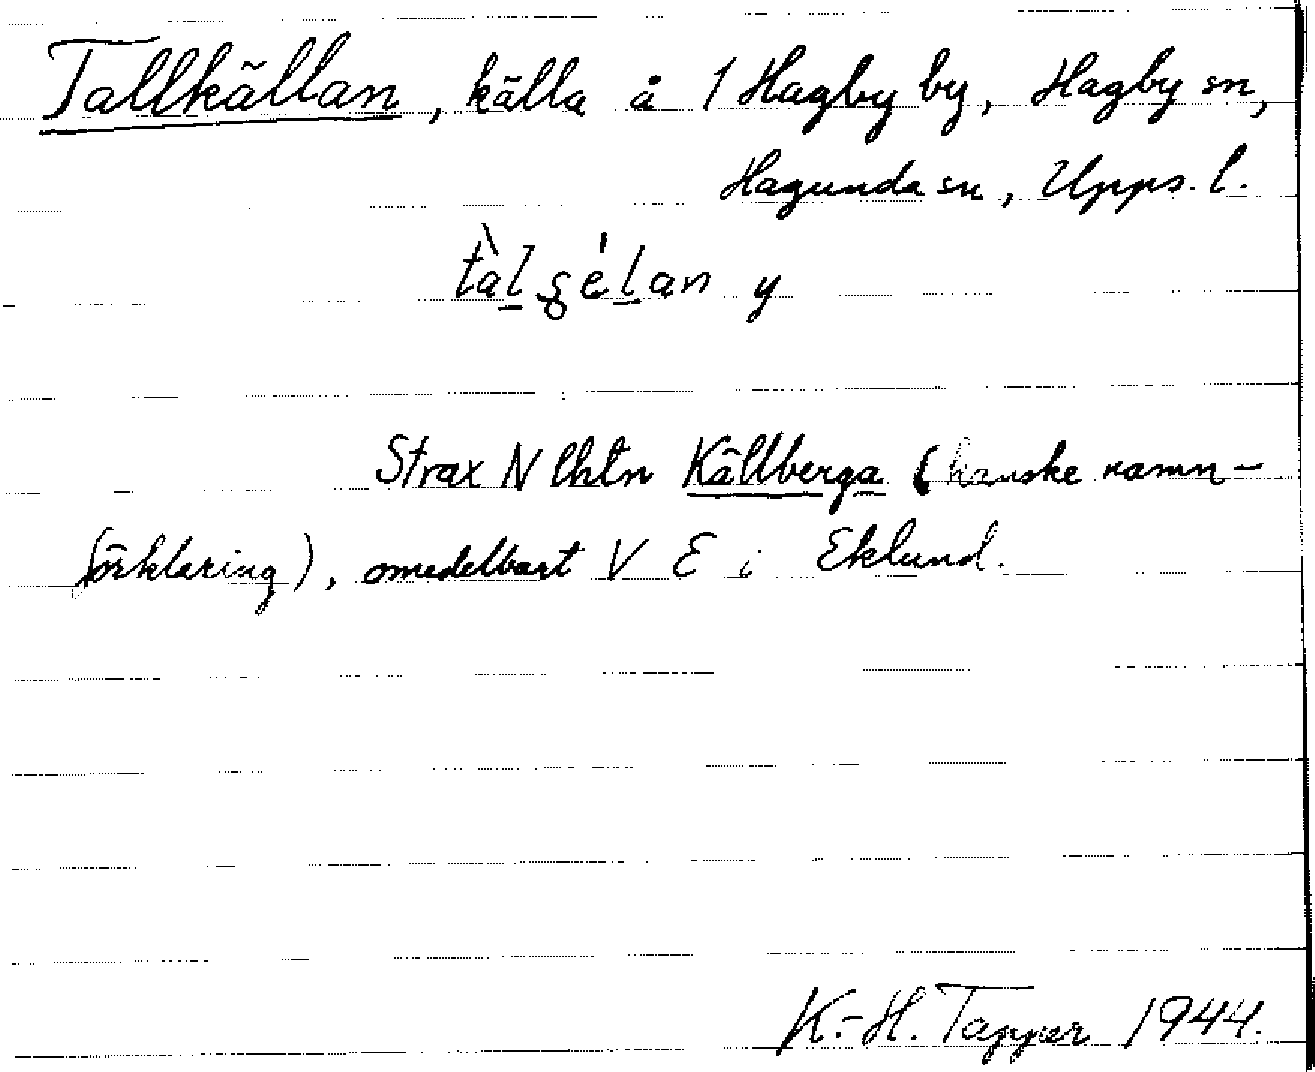 Tallkällan, källa å 1 Hagby by, Hagby sn,
Hagunda sn, Upps. l.
Strax N lhtn Källberga (kanske namn-
förklaring), omedelbart V E i Eklund.
K.-H. Tapper 1944.